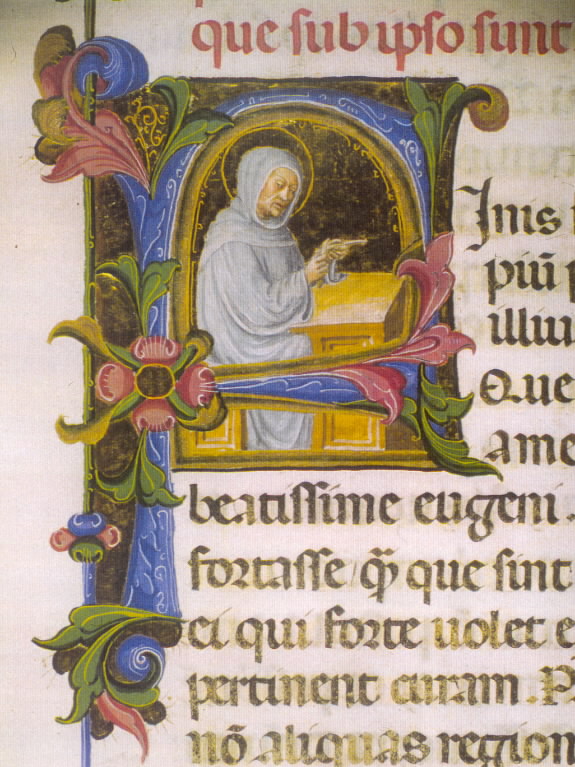 que sub ipso sunt
FInis
piū p
illiu
Que
ame
beatissime eugeni.
fortasse/ qꝛ̄ que sint
ei qui forte uolet e
pertinent curam. P
nō aliquas region